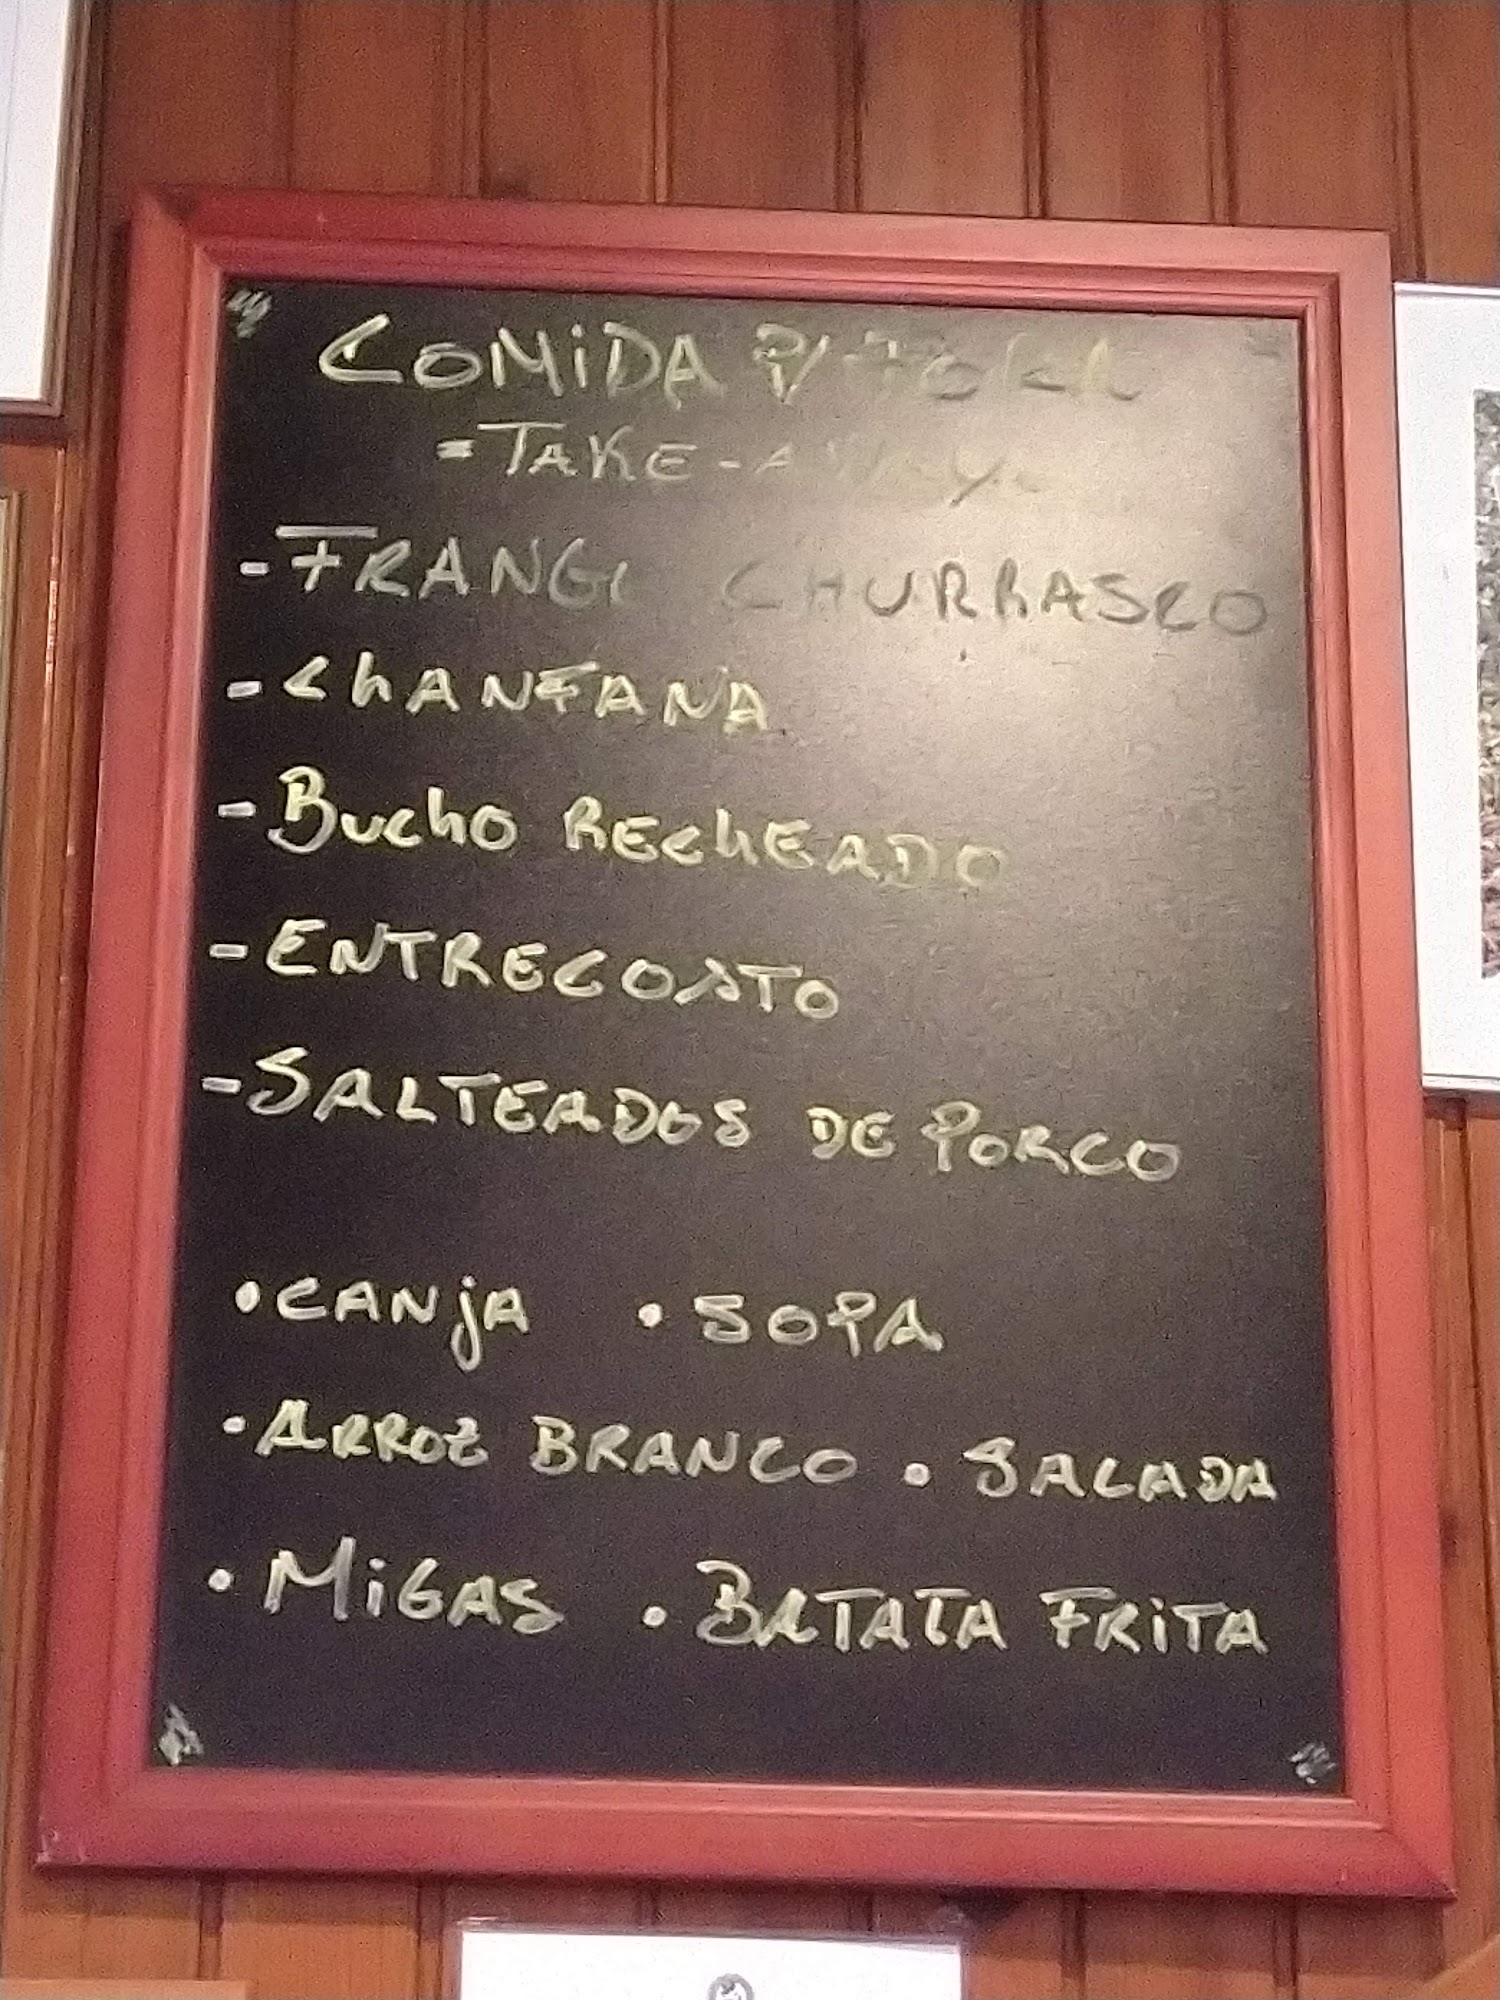 COMIDA P/ FORA
=TAKE-AWAY.
-FRANGO CHURRASCO
-CHANFANA
-BUCHO RECHEADO
-ENTRECOSTO
-SALTEADOS DE PORCO
•CANJA •SOPA
•ARROZ BRANCO •SALADA
•MIGAS •BATATA FRITA